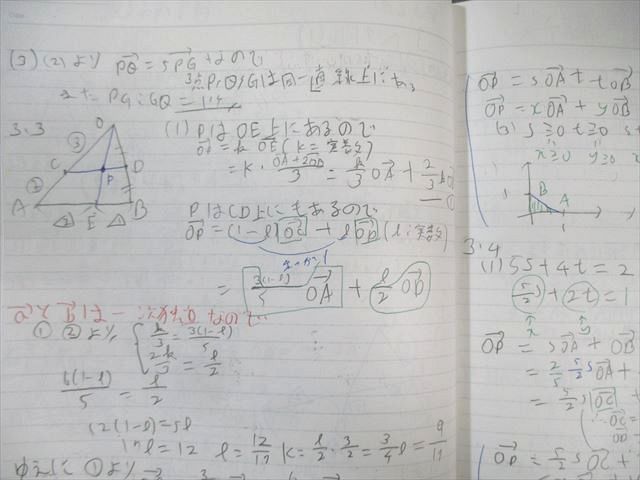 (3) (2)より PQ = 5PG なので
3点P,Q,Gは同一直線上にある
また PG:GQ = 1:4
3.3
O
③
C
D
P
②
A
E
B
② ①
(1) PはOE上にあるので
OP = k OE (k = 実数)
= k・ OA+2OB / 3 = k/3 OA + 2/3 k
—①
PはCD上にもあるので
OP = (1-l) OC + l OD (l:実数)
= 3(1-l)/5 OA + l/2 OB
aとbは一次独立なので
①②より { k/3 = 3(1-l)/5
2k/3 = l/2
6(1-l)/5 = l/2
12(1-l) = 5l
17l = 12 l = 12/17 k = l/2・3/2 = 3/4 l = 9/17
ゆえに ①より
OP = sOA + tOB
OP = xOA + yOB
(b) s≧0 t≧0
x≧0 y≧0
B
A
1
1
3.4
(1) 5s+4t = 2
5/2 s + 2t = 1
x y
OP = sOA + tOB
= 2/5 5/2 sOA +
= 5/2 s OC +
OC =
OD
OP = 5/2 s OC +